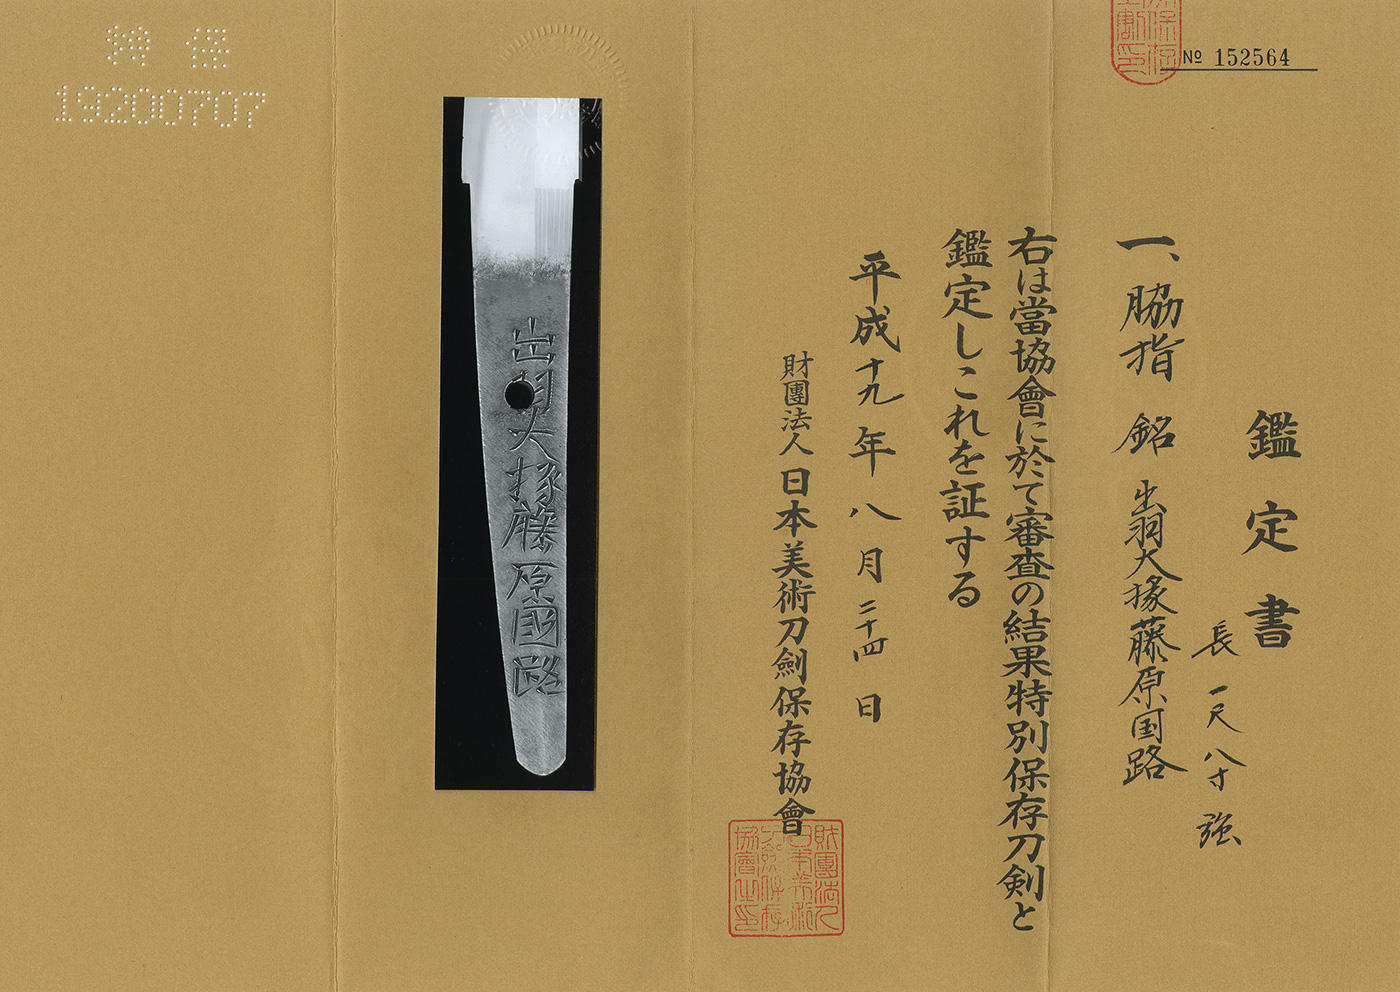 № 152564
鑑定書
長 一尺八寸強
一、脇指 銘 出羽大掾藤原国路
右は當協會に於て審査の結果特別保存刀剣と
鑑定しこれを証する
平成十九年八月二十四日
財團法人日本美術刀劍保存協會
出羽大掾藤原國路
特保
19200707